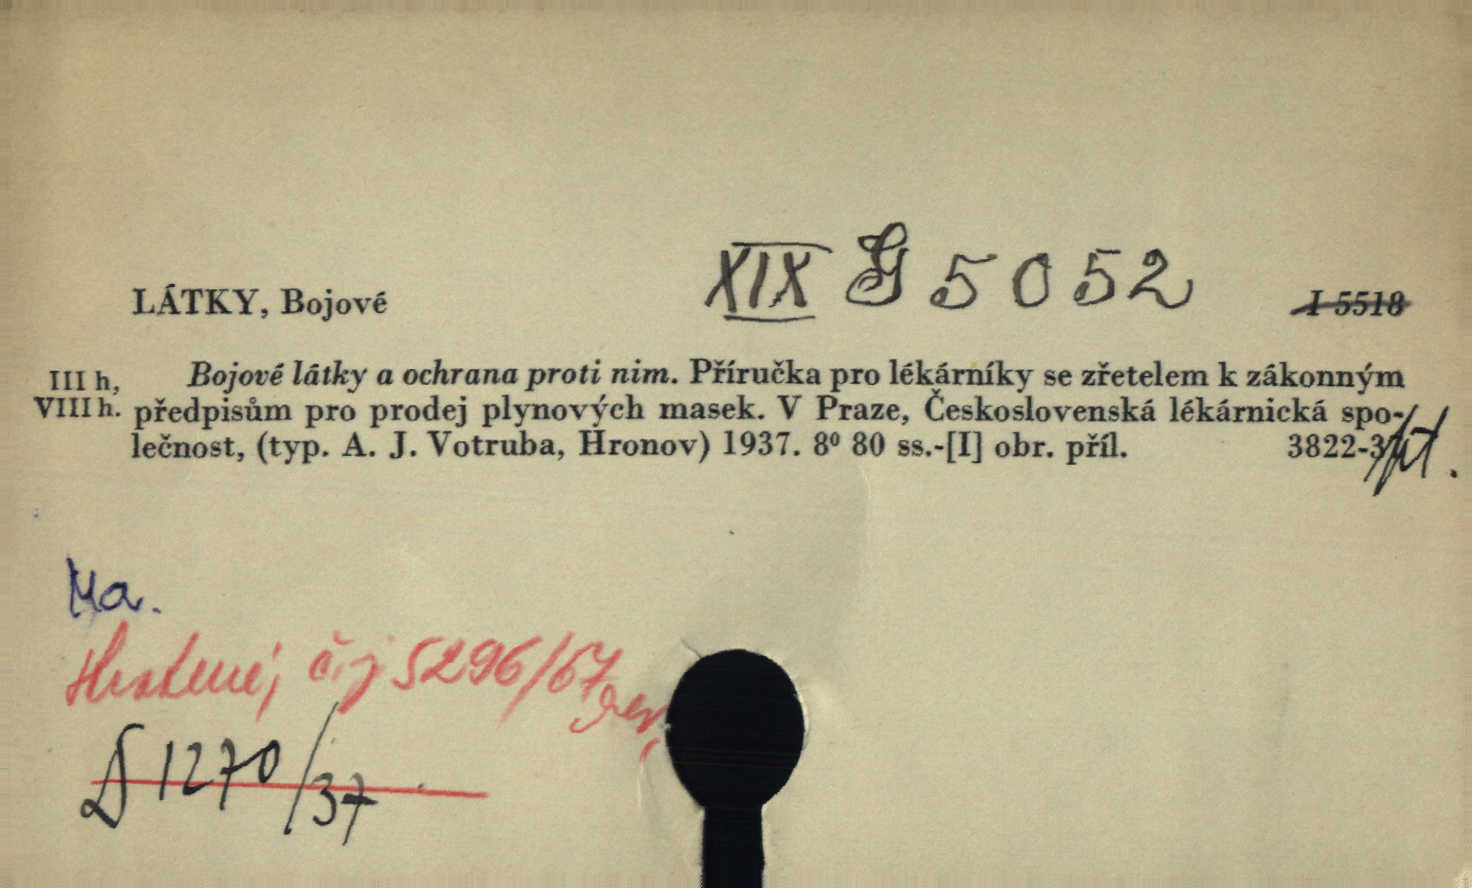 XIX G 5052
LÁTKY, Bojové I 5518
III h, Bojové látky a ochrana proti nim. Příručka pro lékárníky se zřetelem k zákonným
VIII h. předpisům pro prodej plynových masek. V Praze, Československá lékárnická spo-
lečnost, (typ. A. J. Votruba, Hronov) 1937. 8º 80 ss.-[I] obr. příl. 3822-3
Ma.
čj 5296/67
D 1270/37